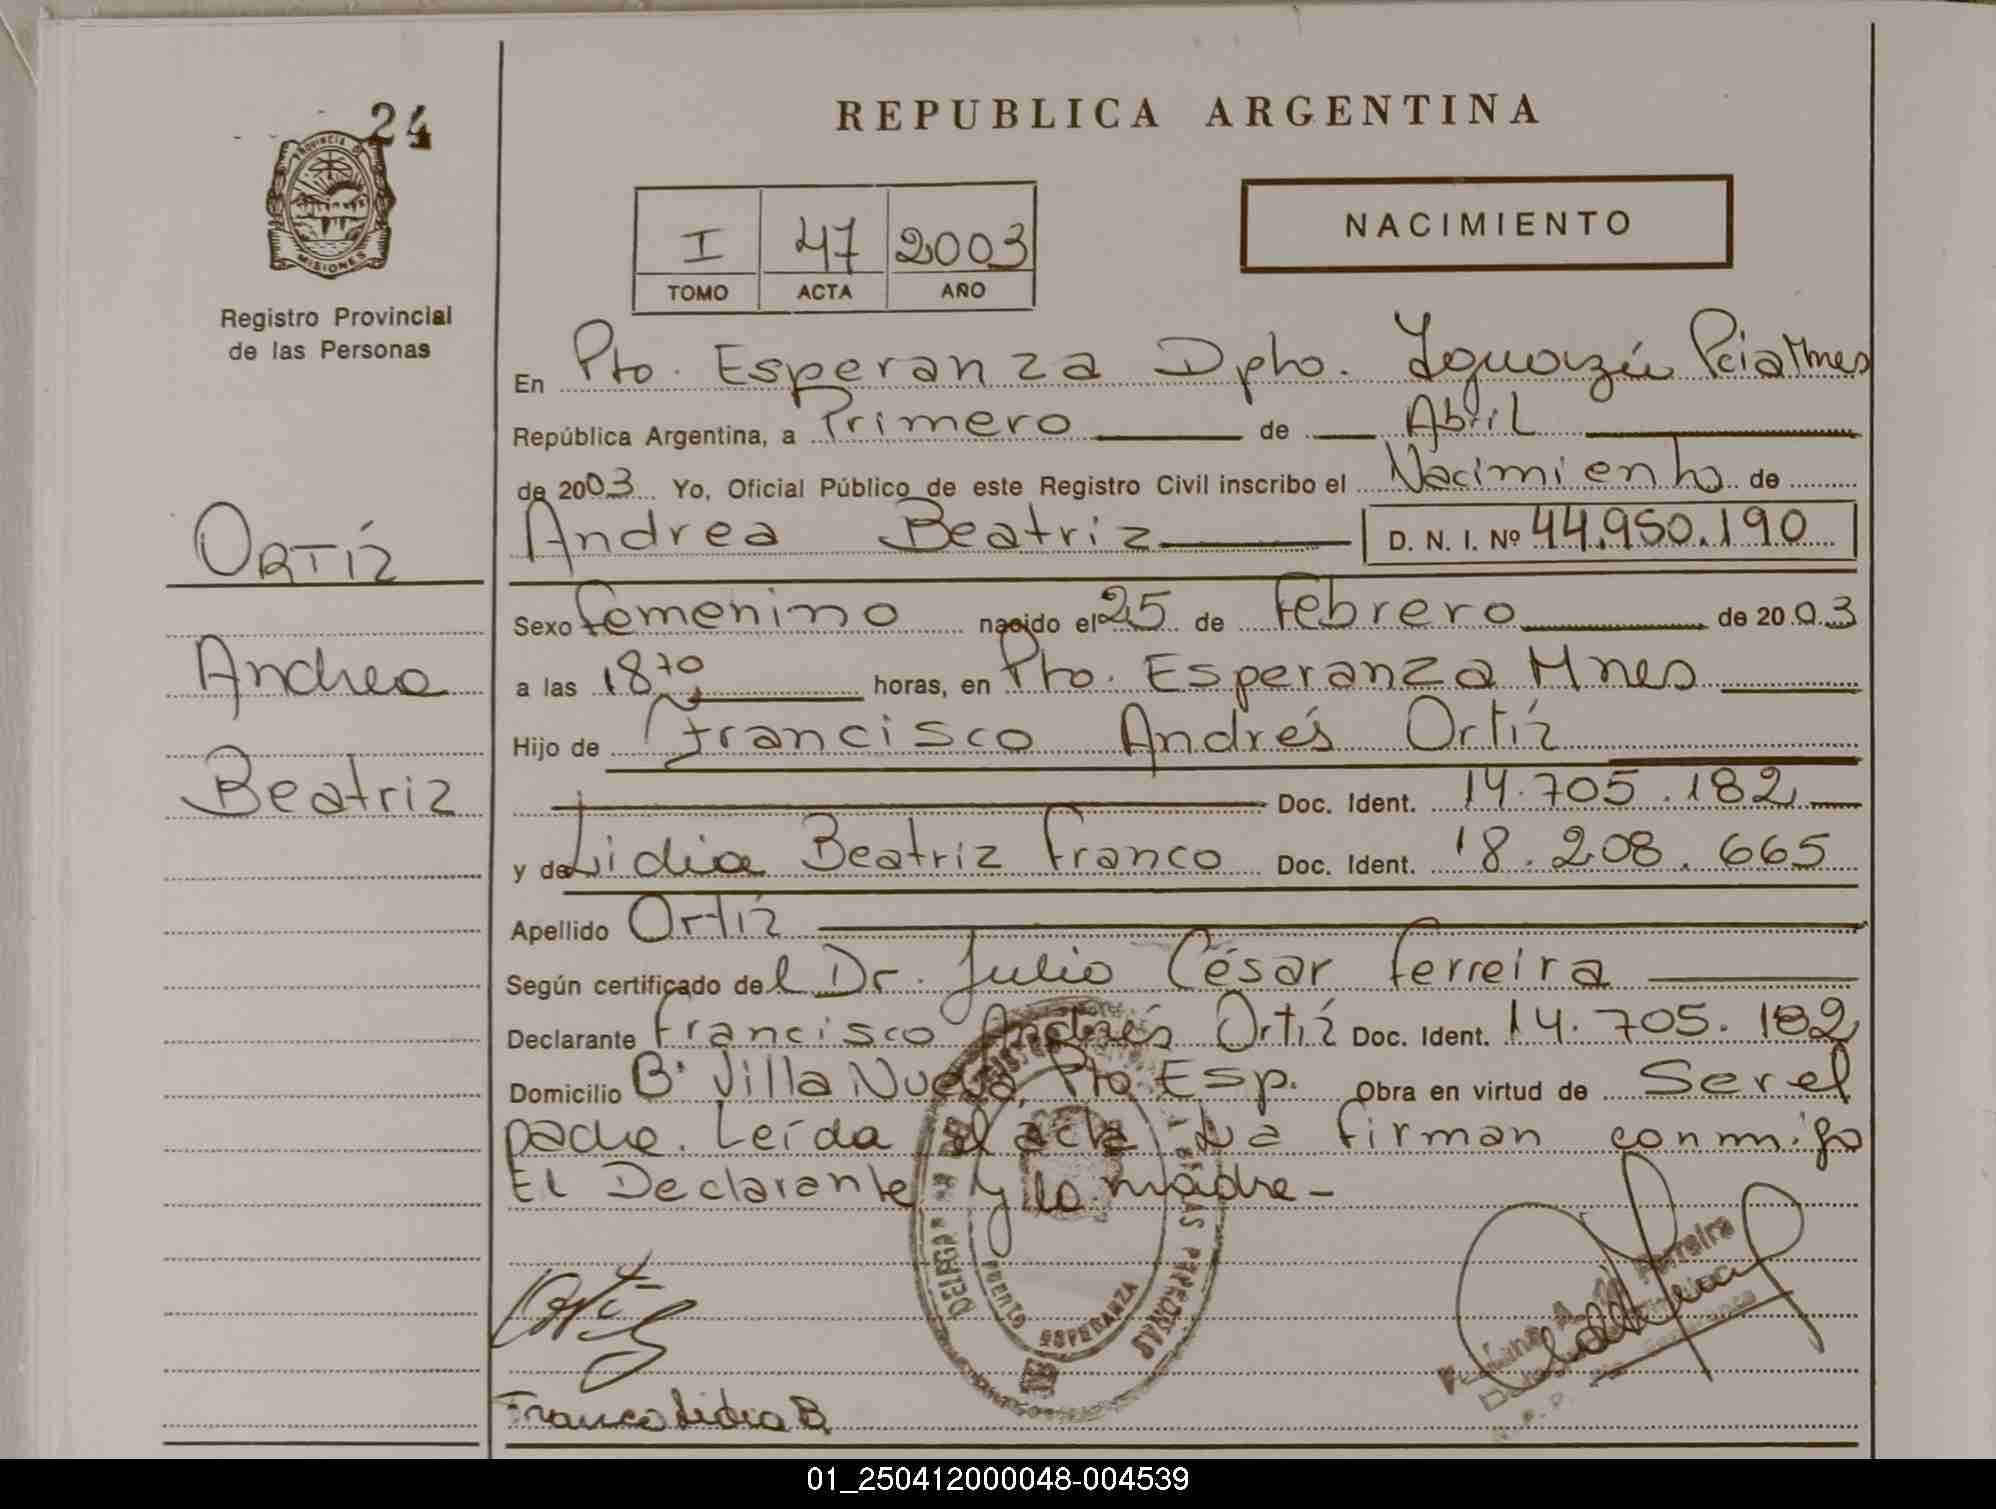 24
PROVINCIA DE
MISIONES
Registro Provincial
de las Personas
ORTÍZ
Andrea
Beatriz
REPUBLICA ARGENTINA
I 47 2003
TOMO ACTA AÑO
NACIMIENTO
En Pto. Esperanza Dpto. Iguazú Pcia Mnes
República Argentina, a Primero de Abril
de 2003 Yo, Oficial Público de este Registro Civil inscribo el Nacimiento de
Andrea Beatriz D. N. I. Nº 44.950.190
Sexo femenino nacido el 25 de Febrero de 2003
a las 18 horas, en Pto. Esperanza Mnes
Hijo de Francisco Andrés Ortíz
Doc. Ident. 14.705.182
y de Lidia Beatriz Franco Doc. Ident. 18.208.665
Apellido Ortíz
Según certificado del Dr. Julio César Ferreira
Declarante Francisco Andrés Ortíz Doc. Ident. 14.705.182
Domicilio Bº Villa Nueva, Pto Esp. Obra en virtud de Ser el
padre. Leída el acta La firman conmigo
El Declarante y la madre-
PUERTO ESPERANZA
Franco Lidia B
01_250412000048-004539